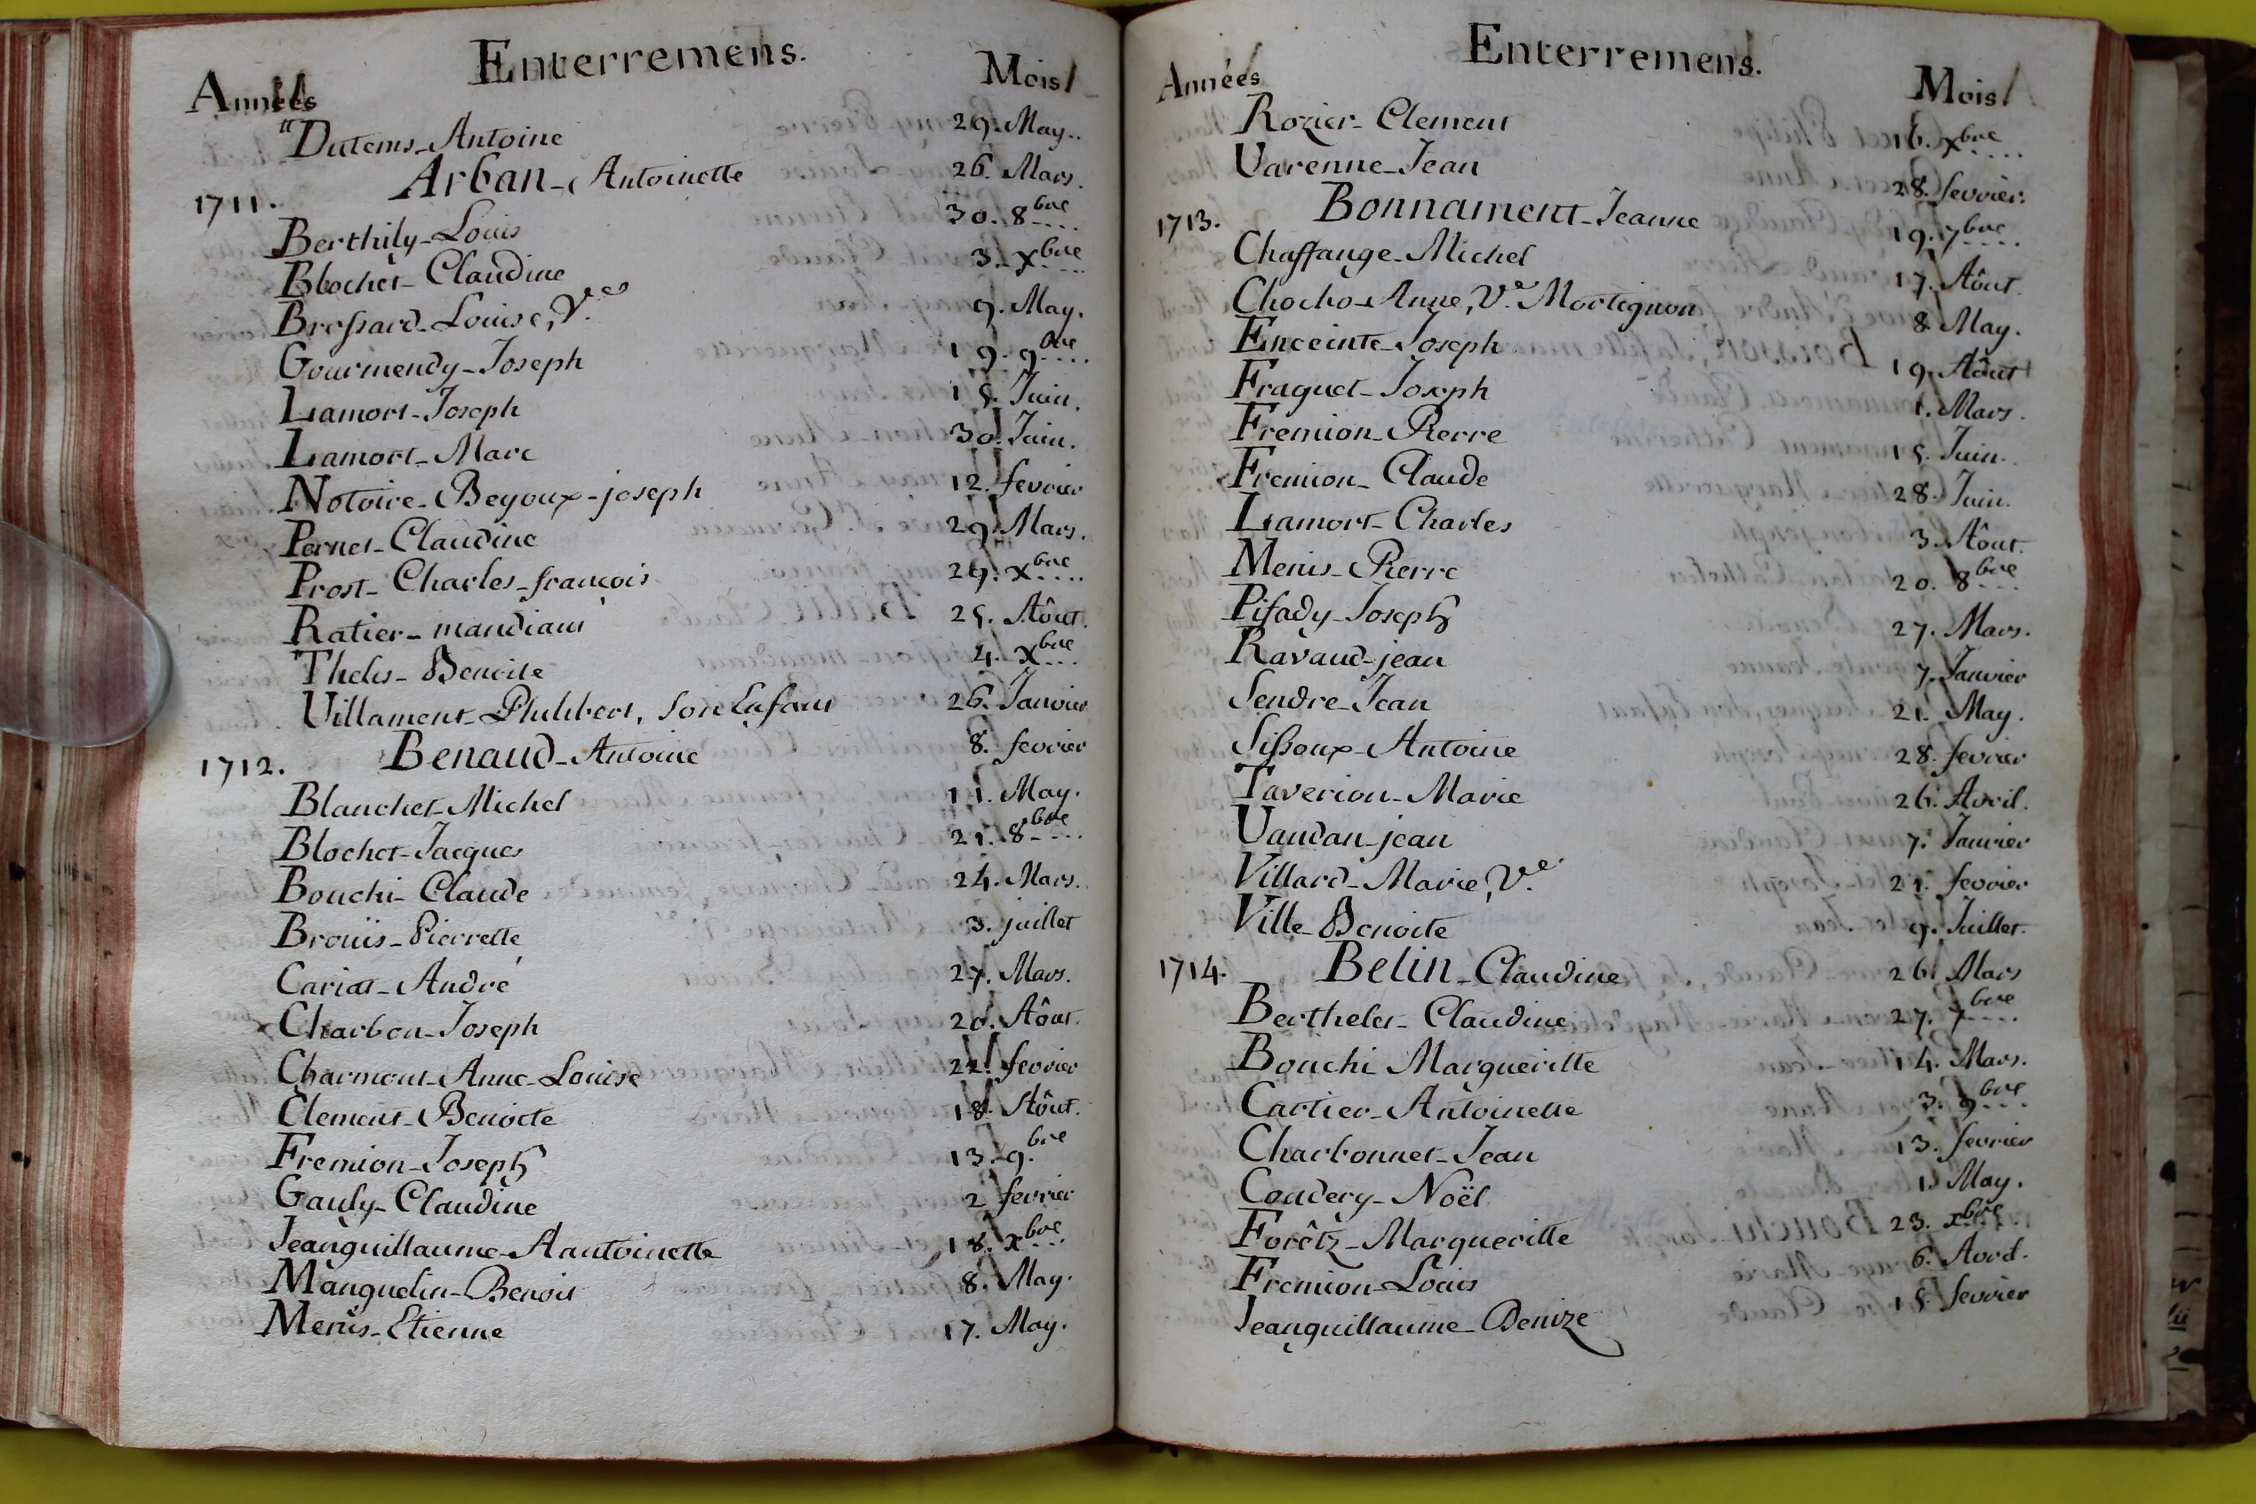 Enterremens.
Années Mois
Dutems - Antoine 29. May..
1711. Arban - Antoinette 26. Mars.
Berthily - Louis 30. 8bre
Blochet - Claudine 3. Xbre
Brossard - Louise, Ve. 9. May.
Gourmendy - Joseph 19. 9bre
Lamort - Joseph 15. Juin.
Lamort - Marc 30. Juin.
Notoire - Beyoux - joseph 12. fevrier
Pernet - Claudine 29. Mars.
Prost - Charles - françois 29. Xbre
Ratier - mandiant 25. Aôut.
Thelis - Benoite 4. Xbre
Villament - Philibert, son Enfant 26. Janvier
1712. Benaud - Antoine 8. fevrier
Blanchet - Michel 11. May.
Blochet - Jacques 21. 8bre
Bouchi - Claude 24. Mars.
Brouïs - Pierrette 3. juillet
Cariat - André 27. Mars.
Charbon - Joseph 20. Aôut.
Charmont - Anne - Louise 22. fevrier
Clement - Benoite 18. Aôut.
Fremion - Joseph 13. 9.bre
Gauly - Claudine 2 fevrier
Jeanguillaume - Aantoinette 18. Xbre
Manguelin - Benoit 8. May.
Menis - Etienne 17. May.
Enterremens.
Années Mois
Rozier - Clement 16. Xbre
Varenne - Jean 28. fevrier.
1713. Bonnament - Jeanne 19. 7bre
Chaffange - Michel 17. Aôut.
Chocho - Anne, Ve. Mortignon 8 May.
Enceinte - Joseph 19. Aôut
Fraguet - Joseph 1. Mars.
Fremion - Pierre 15. Juin.
Fremion - Claude 28. Juin.
Lamort - Charles 3. Aôut.
Menis - Pierre 20. 8bre
Pifady - Joseph 27. Mars.
Ravaud - jean 7. Janvier
Sendre - Jean 21. May.
Sissoux - Antoine 28. fevrier
Taverion - Marie 26. Avril.
Vaudan - jean 7. Janvier
Villard - Marie, Ve. 21. fevrier
Ville - Benoite 9. Juillet.
1714. Belin - Claudine 26. Mars
Berthelet - Claudine 27. 7bre
Bouchi Margueritte 14. Mars.
Cartier - Antoinette 3. 9bre
Charbonnet - Jean 13. fevrier
Coudery - Noël 1. May.
Forêtz - Margueritte 23. xbre
Fremion - Louis 6. Avril.
Jeanguillaume - Denize 15 fevrier